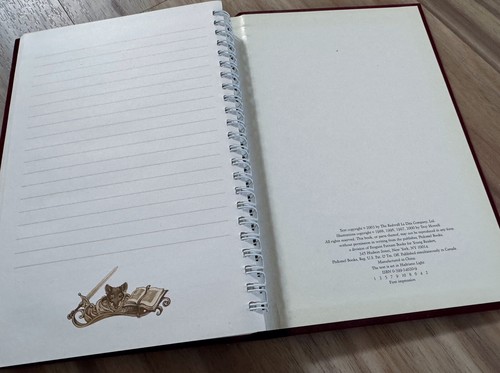 Text copyright © 2001 by The Redwall La Dita Company, Ltd.
Illustrations copyright © 1998, 1996, 1997, 2000 by Troy Howell
All rights reserved. This book, or parts thereof, may not be reproduced in any form
without permission in writing from the publisher, Philomel Books,
a division of Penguin Putnam Books for Young Readers,
345 Hudson Street, New York, NY 10014.
Philomel Books, Reg. U.S. Pat. & Tm. Off. Published simultaneously in Canada.
Manufactured in China
The text is set in
ISBN
1 3 5 7 9 10 8 6 4 2
First Impression